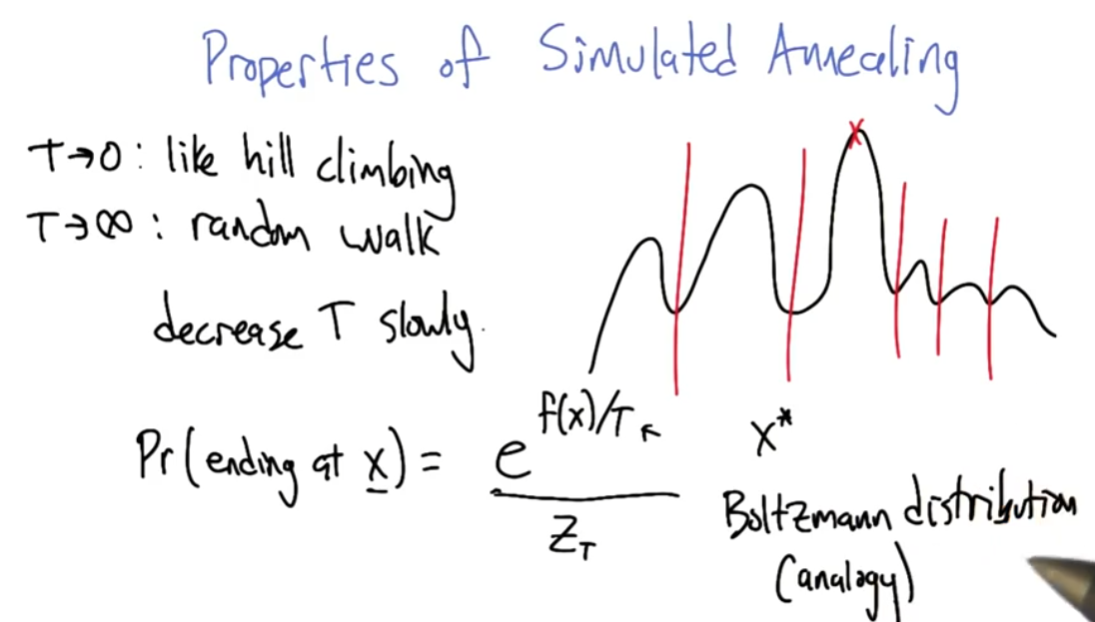 Properties of Simulated Annealing
T→0: like hill climbing
T→∞: random walk
decrease T slowly.
x
Pr(ending at x) = e^f(x)/T / Z_T
x*
Boltzmann distribution
(analogy)